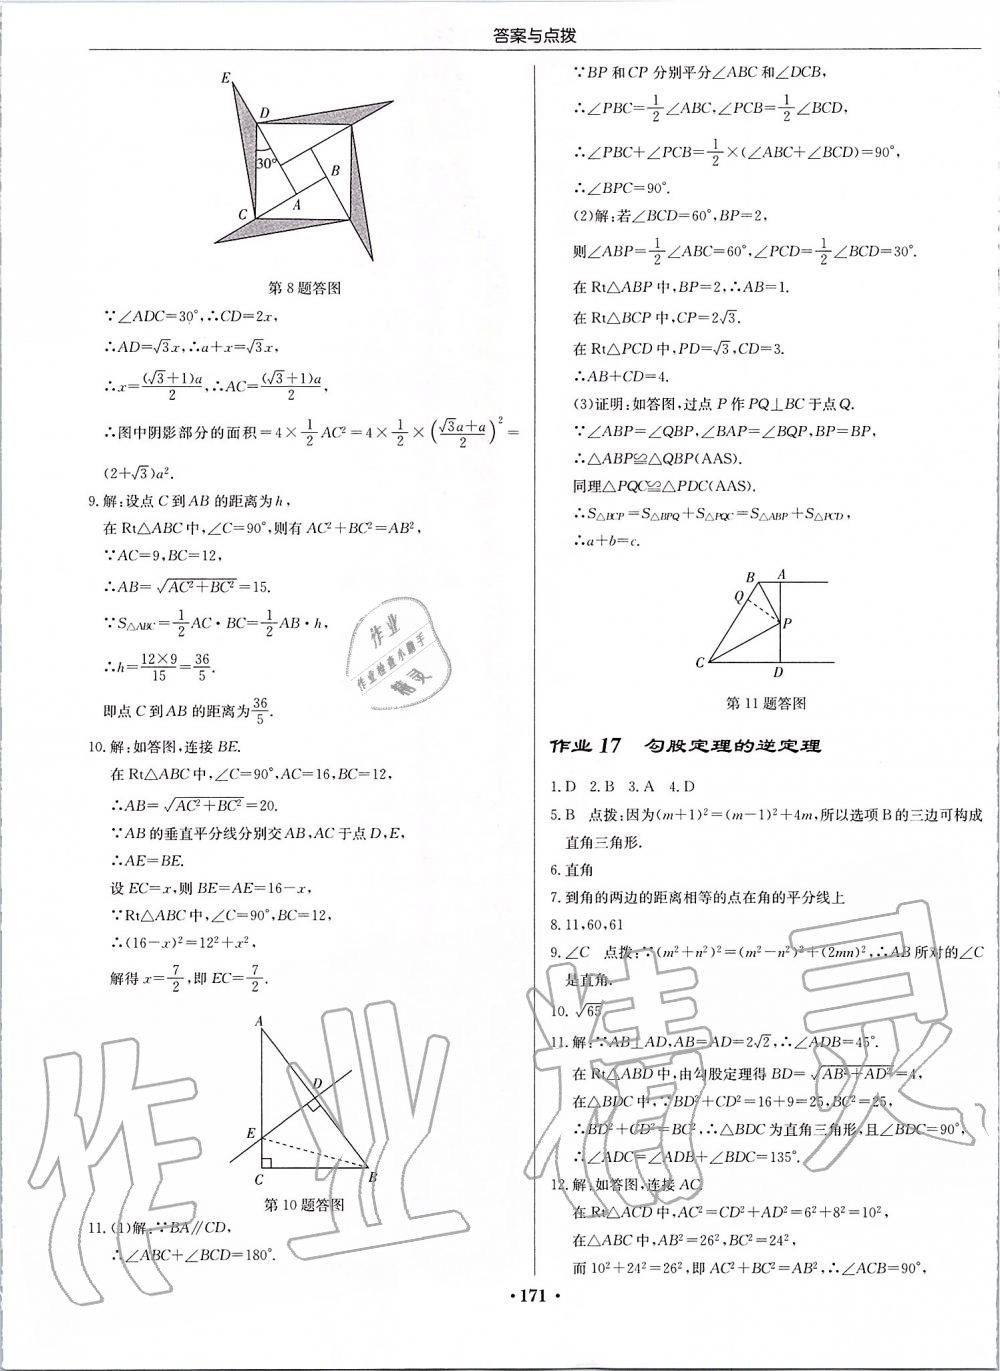 答案与点拨
E
D
30°
B
A
C
第8题答图
∵∠ADC=30°,∴CD=2x,
∴AD=√3x,∴a+x=√3x,
∴x=(√3+1)a/2,∴AC=(√3+1)a/2,
∴图中阴影部分的面积=4×1/2AC²=4×1/2×(√3a+a/2)²=
(2+√3)a².
9.解:设点C到AB的距离为h,
在Rt△ABC中,∠C=90°,则有AC²+BC²=AB²,
∵AC=9,BC=12,
∴AB=√AC²+BC²=15.
∵S△ABC=1/2AC·BC=1/2AB·h,
∴h=12×9/15=36/5.
即点C到AB的距离为36/5.
10.解:如答图,连接BE.
在Rt△ABC中,∠C=90°,AC=16,BC=12,
∴AB=√AC²+BC²=20.
∵AB的垂直平分线分别交AB,AC于点D,E,
∴AE=BE.
设EC=x,则BE=AE=16-x,
∵Rt△ABC中,∠C=90°,BC=12,
∴(16-x)²=12²+x²,
解得x=7/2,即EC=7/2.
A
D
E
C
B
第10题答图
11.(1)解:∵BA∥CD,
∴∠ABC+∠BCD=180°.
∵BP和CP分别平分∠ABC和∠DCB,
∴∠PBC=1/2∠ABC,∠PCB=1/2∠BCD,
∴∠PBC+∠PCB=1/2×(∠ABC+∠BCD)=90°,
∴∠BPC=90°.
(2)解:若∠BCD=60°,BP=2,
则∠ABP=1/2∠ABC=60°,∠PCD=1/2∠BCD=30°.
在Rt△ABP中,BP=2,∴AB=1.
在Rt△BCP中,CP=2√3.
在Rt△PCD中,PD=√3,CD=3.
∴AB+CD=4.
(3)证明:如答图,过点P作PQ⊥BC于点Q.
∵∠ABP=∠QBP,∠BAP=∠BQP,BP=BP,
∴△ABP≌△QBP(AAS).
同理△PQC≌△PDC(AAS).
∴S△BCP=S△BPQ+S△PQC=S△ABP+S△PCD,
∴a+b=c.
B A
Q
P
C
D
第11题答图
作业17 勾股定理的逆定理
1.D 2.B 3.A 4.D
5.B 点拨:因为(m+1)²=(m-1)²+4m,所以选项B的三边可构成
直角三角形.
6.直角
7.到角的两边的距离相等的点在角的平分线上
8.11,60,61
9.∠C 点拨:∵(m²+n²)²=(m²-n²)²+(2mn)²,∴AB所对的∠C
是直角.
10.√65
11.解:∵AB⊥AD,AB=AD=2√2,∴∠ADB=45°.
在Rt△ABD中,由勾股定理得BD=√AB²+AD²=4,
在△BDC中,∵BD²+CD²=16+9=25,BC²=25,
∴BD²+CD²=BC²,∴△BDC为直角三角形,且∠BDC=90°,
∴∠ADC=∠ADB+∠BDC=135°.
12.解:如答图,连接AC
在Rt△ACD中,AC²=CD²+AD²=6²+8²=10²,
在△ABC中,AB²=26²,BC²=24²,
而10²+24²=26²,即AC²+BC²=AB²,∴∠ACB=90°,
·171·
作业
作业检查小助手
精灵
作业精灵